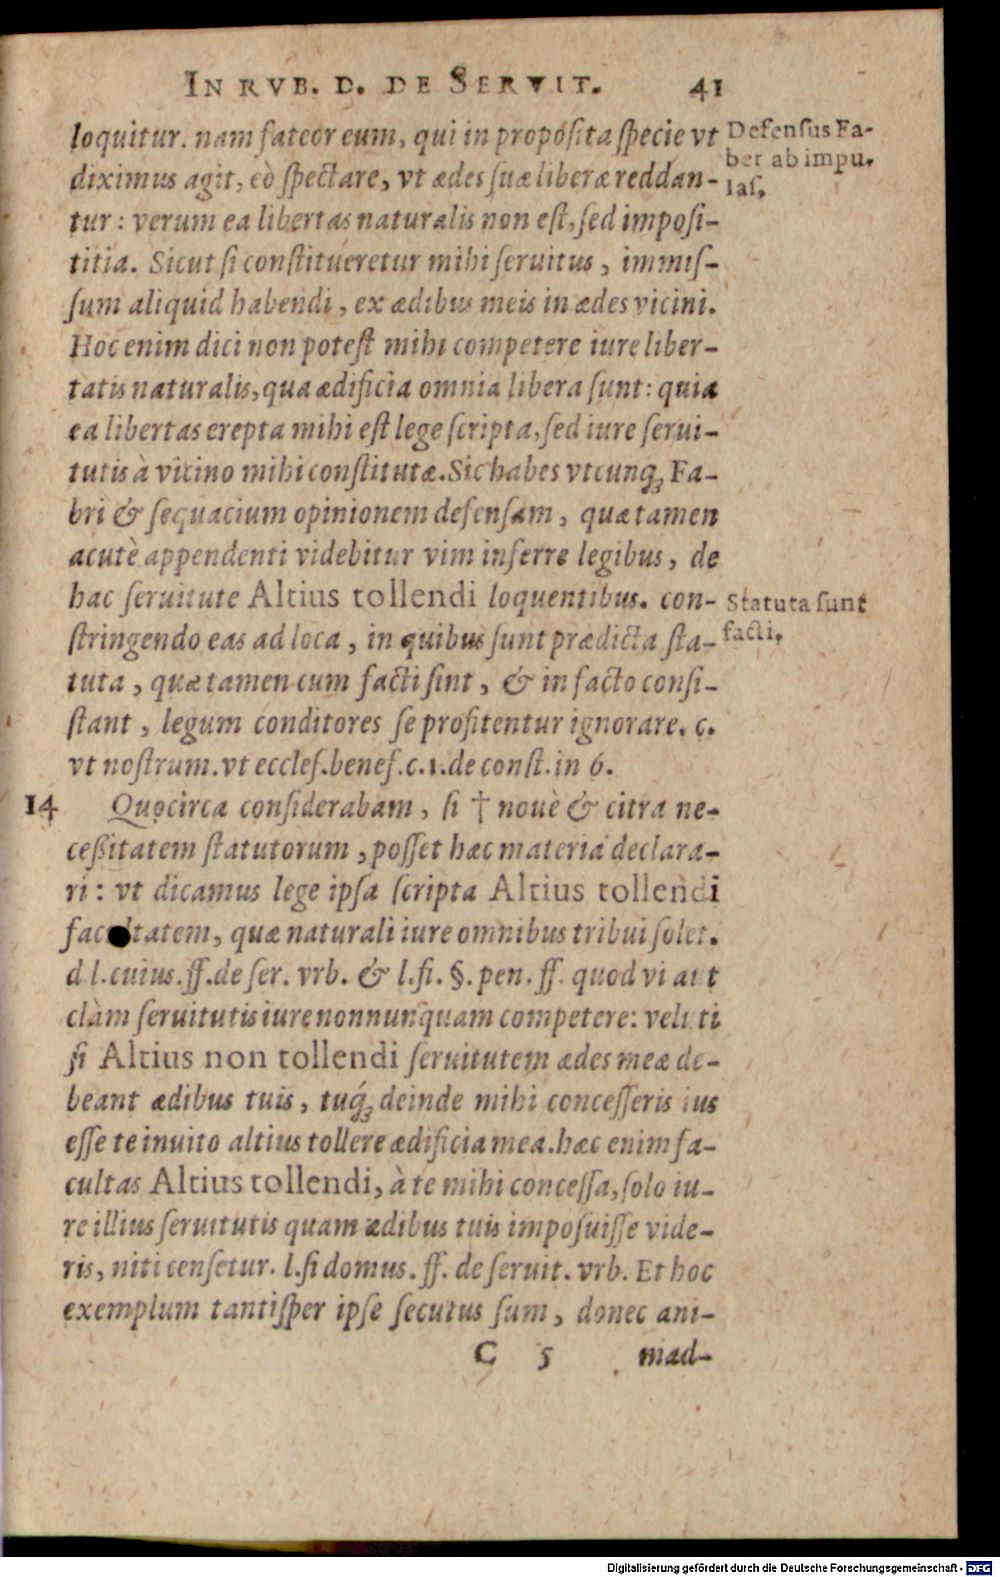 IN RVB. D. DE SERVIT. 41
loquitur. nam fateor eum, qui in proposita specie vt
diximus agit, eò spectare, vt ædes suæ liberæ reddan-
tur: verum ea libertas naturalis non est, sed imposi-
titia. Sicut si constitueretur mihi seruitus, immis-
sum aliquid habendi, ex ædibus meis in ædes vicini.
Hoc enim dici non potest mihi competere iure liber-
tatis naturalis, qua ædificia omnia libera sunt: quia
ea libertas erepta mihi est lege scripta, sed iure serui-
tutis à vicino mihi constitutæ. Sic habes vtcunq; Fa-
bri & sequacium opinionem defensam, quæ tamen
acutè appendenti videbitur vim inferre legibus, de
hac seruitute Altius tollendi loquentibus. con-
stringendo eas ad loca, in quibus sunt prædicta sta-
tuta, quæ tamen cum facti sint, & in facto consi-
stant, legum conditores se profitentur ignorare. c.
vt nostrum. vt eccles. benef. c. 1. de const. in 6.
Defensus Fa-
ber ab impu-
las.
Statuta sunt
facti.
14 Quocirca considerabam, si † nouè & citra ne-
cessitatem statutorum, posset hæc materia declara-
ri: vt dicamus lege ipsa scripta Altius tollendi
facultatem, quæ naturali iure omnibus tribui solet.
d l. cuius. ff. de ser. vrb. & l. fi. §. pen. ff. quod vi aut
clàm seruitutis iure nonnunquam competere: veluti
si Altius non tollendi seruitutem ædes meæ de-
beant ædibus tuis, tuq́; deinde mihi concesseris ius
esse te inuito altius tollere ædificia mea. hæc enim fa-
cultas Altius tollendi, à te mihi concessa, solo iu-
re illius seruitutis quam ædibus tuis imposuisse vide-
ris, niti censetur. l. si domus. ff. de seruit. vrb. Et hoc
exemplum tantisper ipse secutus sum, donec ani-
C 5 mad-
Digitalisierung gefördert durch die Deutsche Forschungsgemeinschaft - DFG